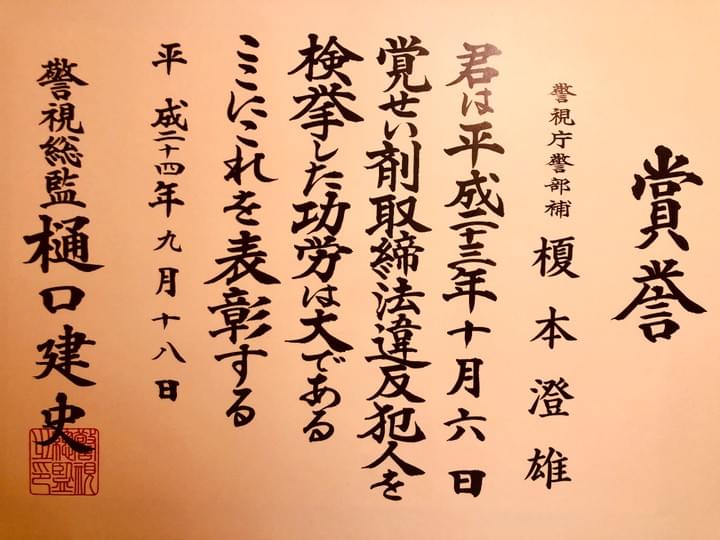 賞誉
警視庁警部補 榎本澄雄
君は平成二十三年十月六日
覚せい剤取締法違反犯人を
検挙した功労は大である
ここにこれを表彰する
平成二十四年九月十八日
警視総監 樋口建史
警視総監之印